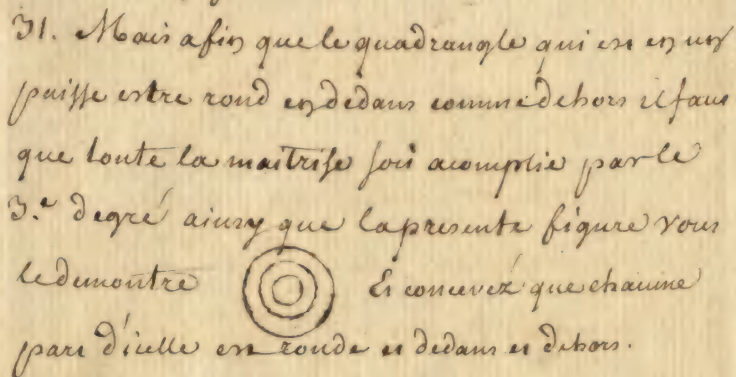 31. Mais afin que le quadrangle qui est en un
puisse estre rond en dedans comme dehors il faut
que toute la maitrise soit acomplie par le
3.e degré ainsy que la presente figure vous
le demontre Et concevéz que chacune
part d'icelle est ronde et dedans et dehors.